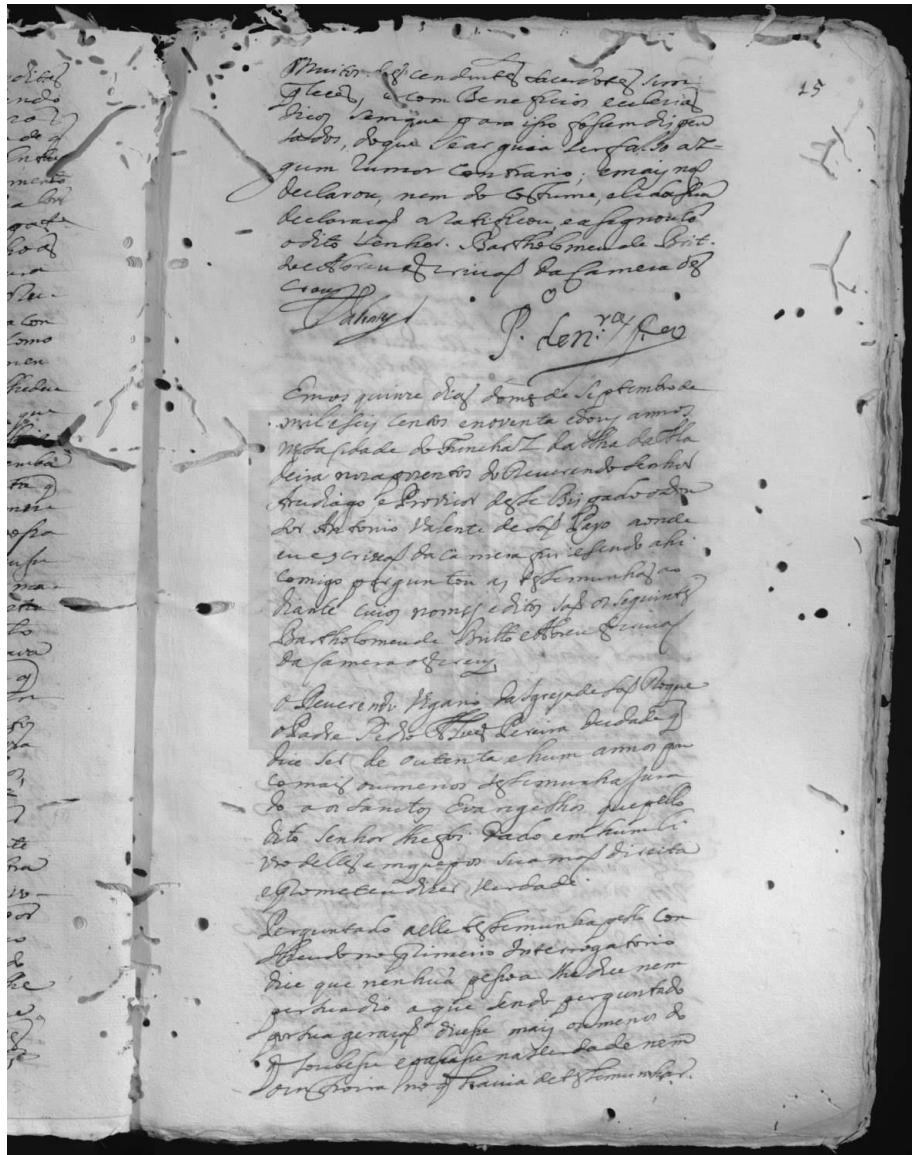 15
Muitos descendentes sacerdotes sim
plices, e com Beneficios eclesias
ticos sem que para isso fosem dispen
sados, doque se arguia ser falso al
gum rumor contrario; e mais não
declarou, nem do costume, e
declaração a ratificou, e asignou cõ
o dito Senhor. Bartholomeu de Brit
to e Abreu escrivaõ da Camera o es
crevy
Em os quinze dias do mes de Septembro de
mil e seis centos e noventa e annos
nesta cidade do Funchal da Ilha da Ma
deira nos apozentos do Reverendo Senhor
Arcediago e Provizor deste Bispado o
tor Antonio Valente de Saõ Payo aonde
eu escrivaõ da camera fui e sendo ahi
comigo perguntou as testemunhas ao
diante cuios nomes e ditos saõ os seguintes
Bartholomeu de Britto e Abreu escrivaõ
da camera o escrevy
O Reverendo Vigario da Igreja de Saõ Roque
o Padre Pedro Pereira de idade q
dice ser de outenta e hum annos pou
co mais ou menos testemunha jura
do aos Sanctos Evangelhos que pello
dito Senhor lhe foi dado em hum li
vro delles em que pos sua maõ direita
e prometeu dizer verdade
Perguntado a elle testemunha pello con
theudo no primeiro Interrogatorio
dice que nenhuã pesoa lhe dice nem
persuadio a que sendo perguntado
por sua geraçaõ dicese mais ou menos do
q soubese e pasase na verdade nem
no q havia de testemunhar.